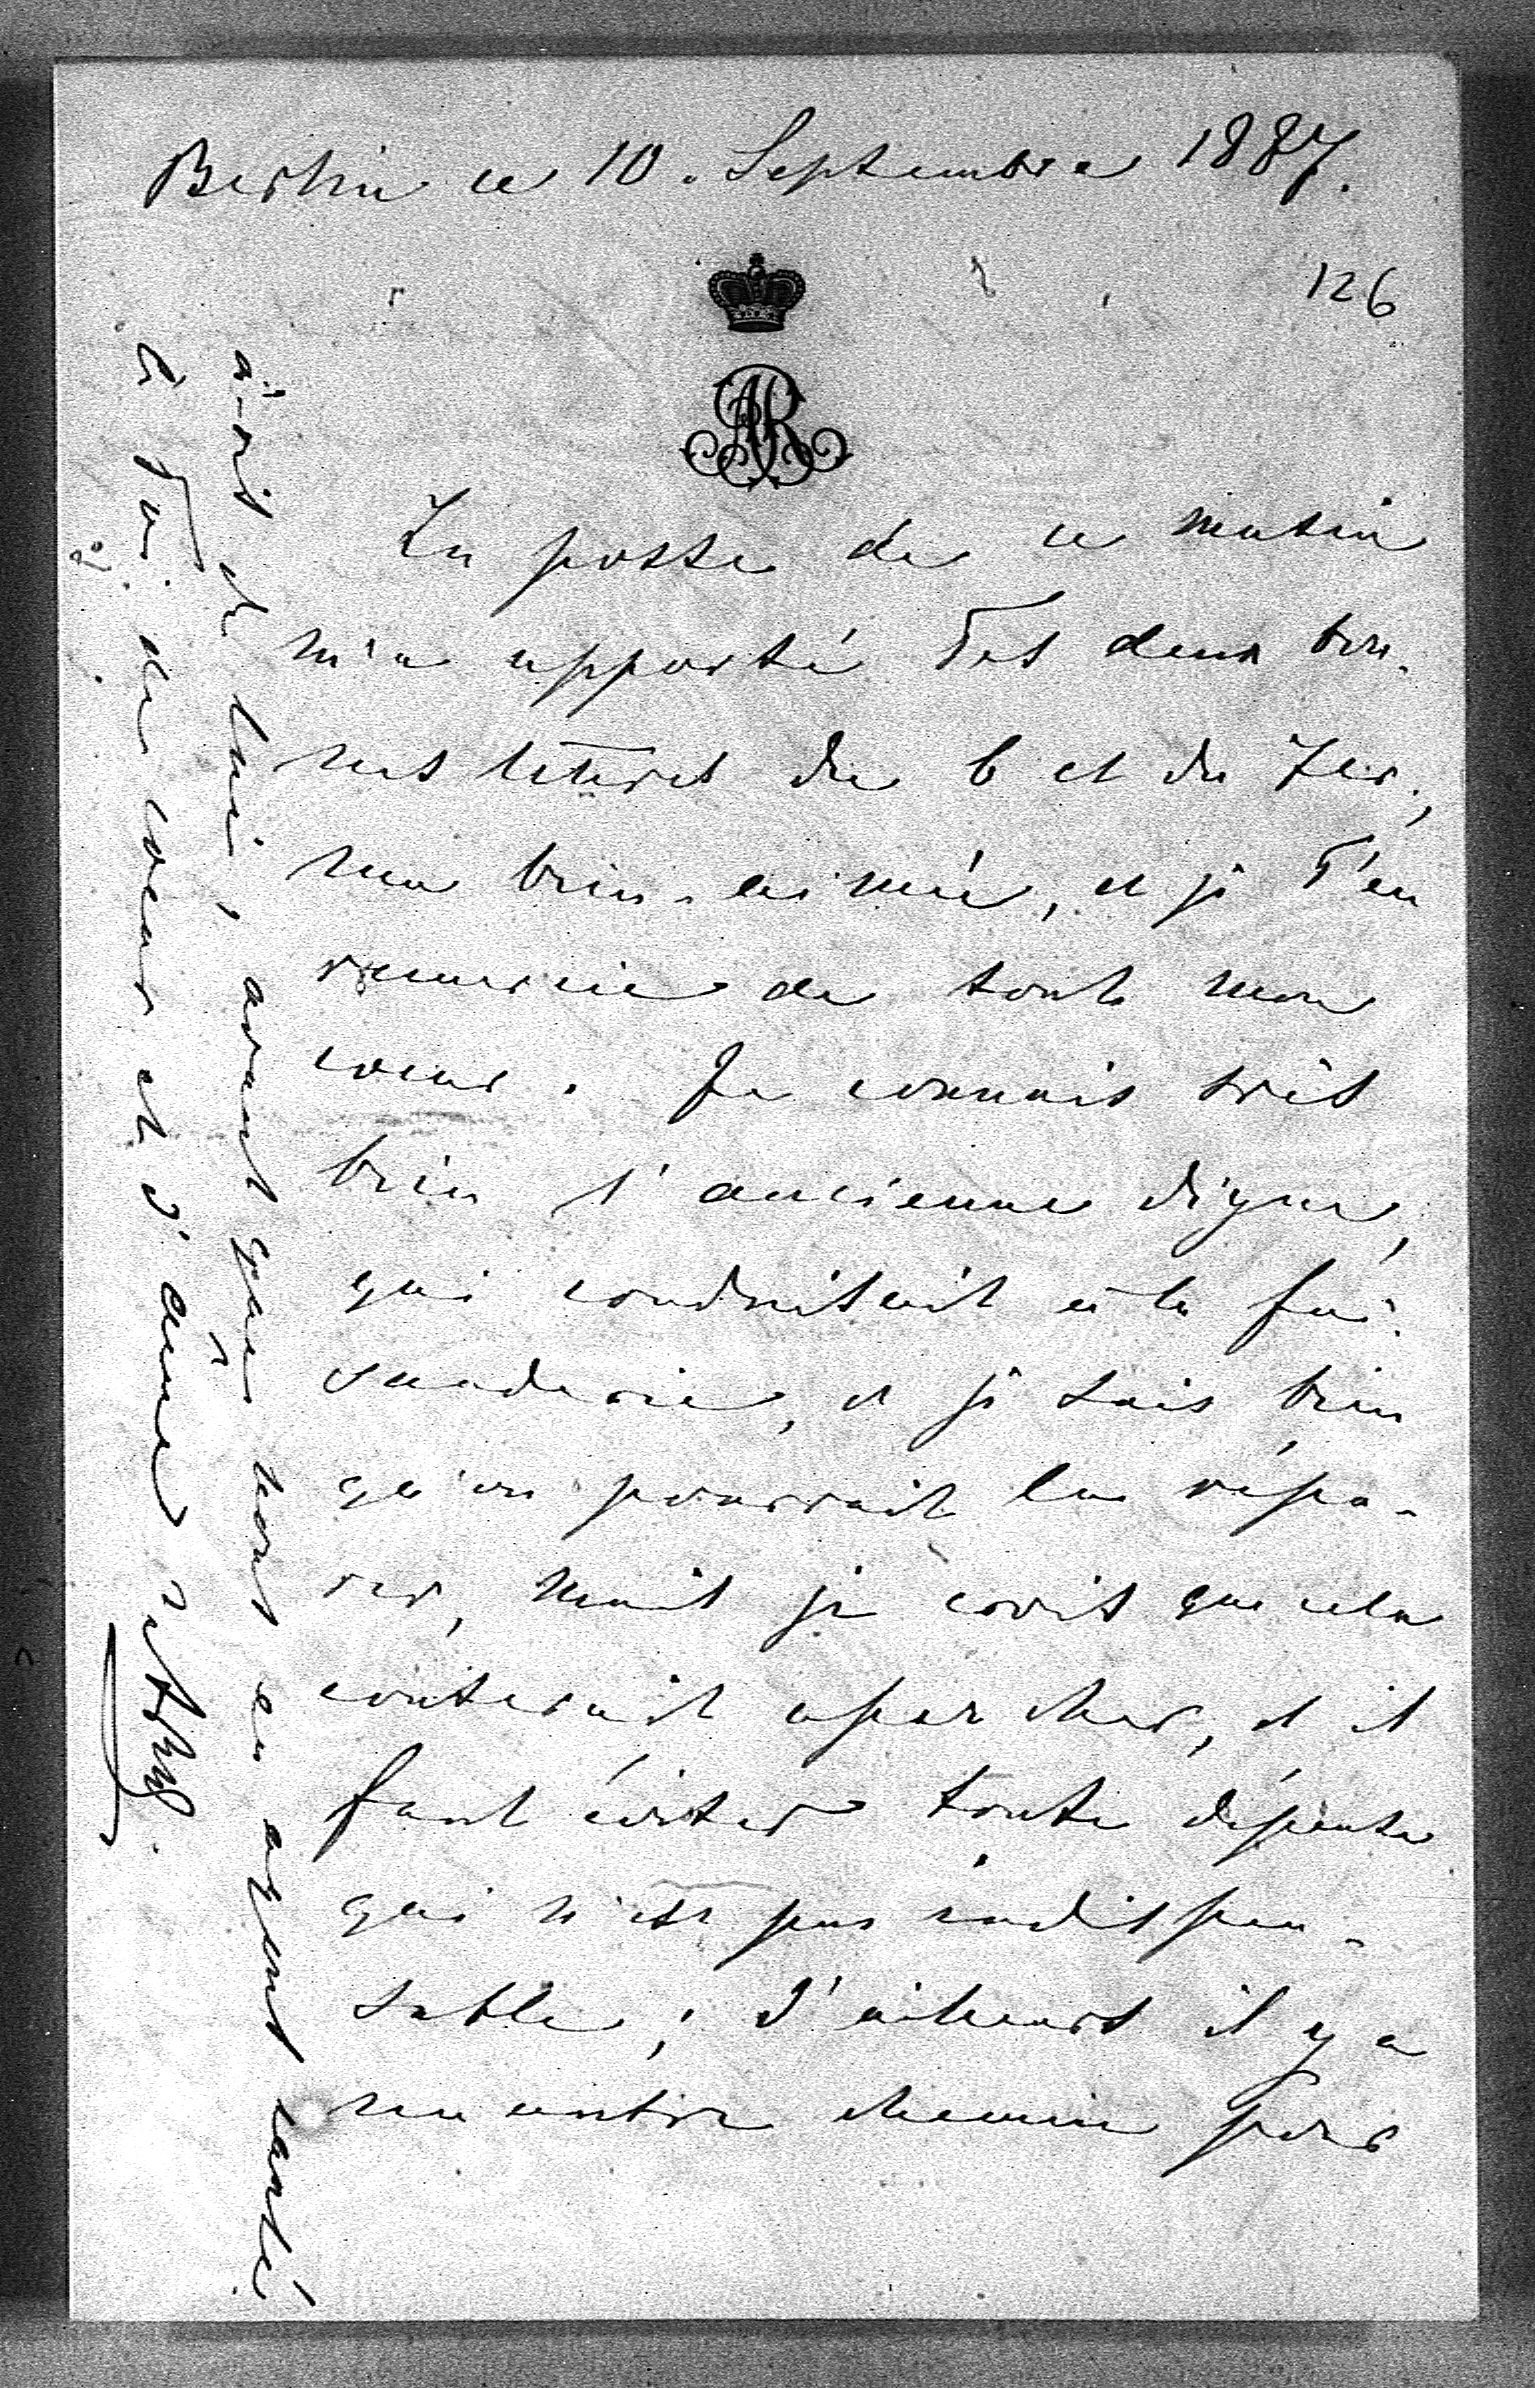 Berlin ce 10. Septembre 1887.
126
AR
La poste de ce matin
m'a apporté Tes deux bon-
nes lettres du 6 et du 7er.,
ma bien-aimée, et je T'en
remercie de tout mon
coeur. Je connais très
bien l'ancienne digue,
qui conduisait à la fai-
sanderie, et je sais bien
qu'on pourrait la répa-
rer, mais je crois que cela
couterait assez cher, et il
faut éviter toute dépense
qui n'est pas indispen-
sable; d'ailleurs il y a
un autre chemin pour
à-vis de lui, avant que nous en ayons causé.
à Toi de coeur et d'âme